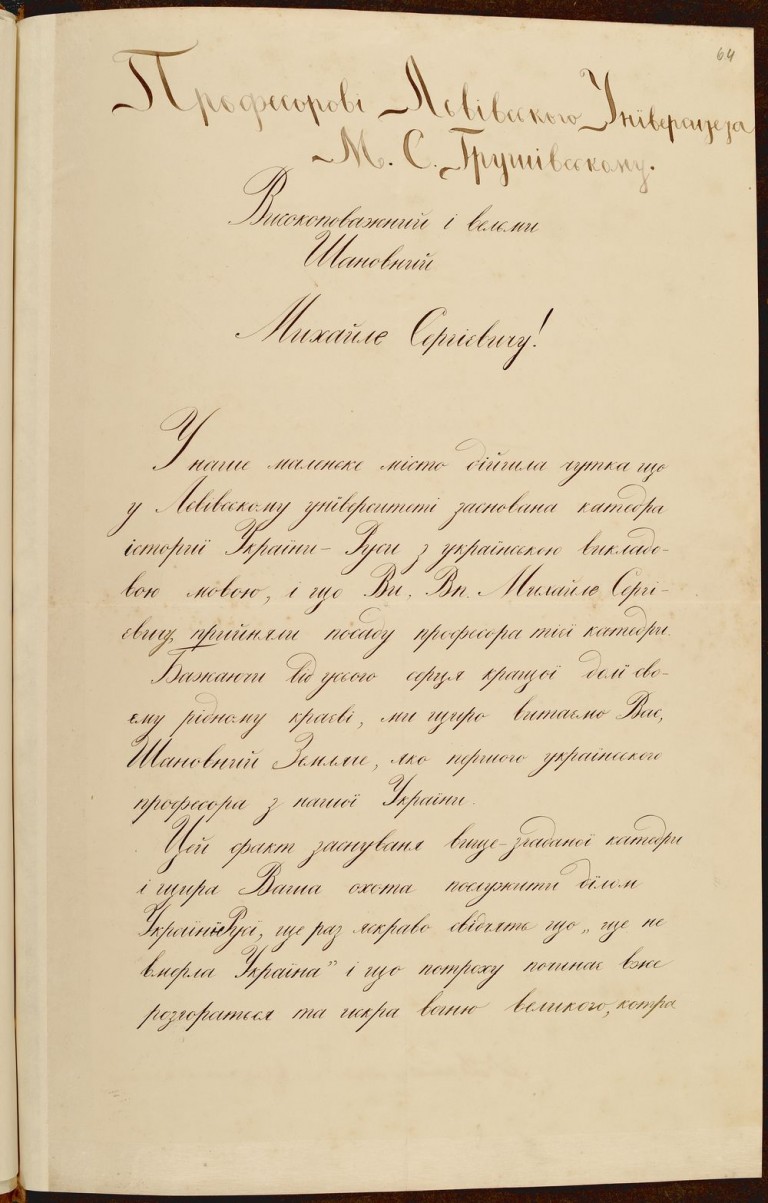 64
Професорові Львівського Університета
М. С. Грушівському.
Високоповажний і вельми
Шановний
Михайле Сергієвичу!
У наше маленьке місто дійшла чутка що
у Львівському університеті заснована катедра
істориї України-Руси з українською викладо-
вою мовою, і що Ви, Вп. Михайле Сергі-
євичу, прийняли посаду професора тієї катедри.
Бажаючи від усього серця кращої долі сво-
єму рідному краєві, ми щиро витаємо Вас,
Шановний Земляче, яко першого українського
професора з нашої України.
Цей факт заснуваня више-згаданої катедри
і щира Ваша охота послужити ділом
Україні Русі, ще раз яскраво свідчять що „ще не
вмерла Україна" і що потроху починає вже
розгораться та искра вогню великого, котра